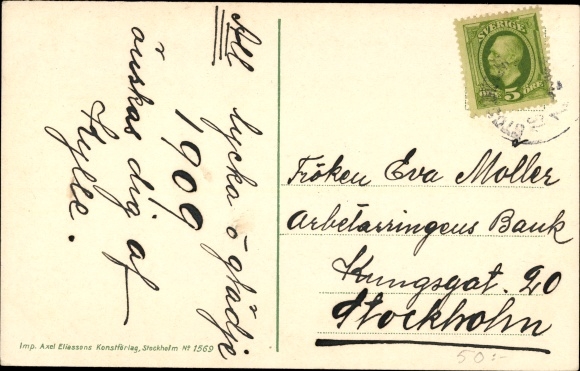 All lycka o glädje
1909
önskas dig af
Hylle.
SVERIGE
5 ÖRE
Fröken Eva Moller
Arbetarringens Bank
Kungsgat. 20
Stockholm
50:-
Imp. Axel Eliassons Konstförlag, Stockholm Nº 1569